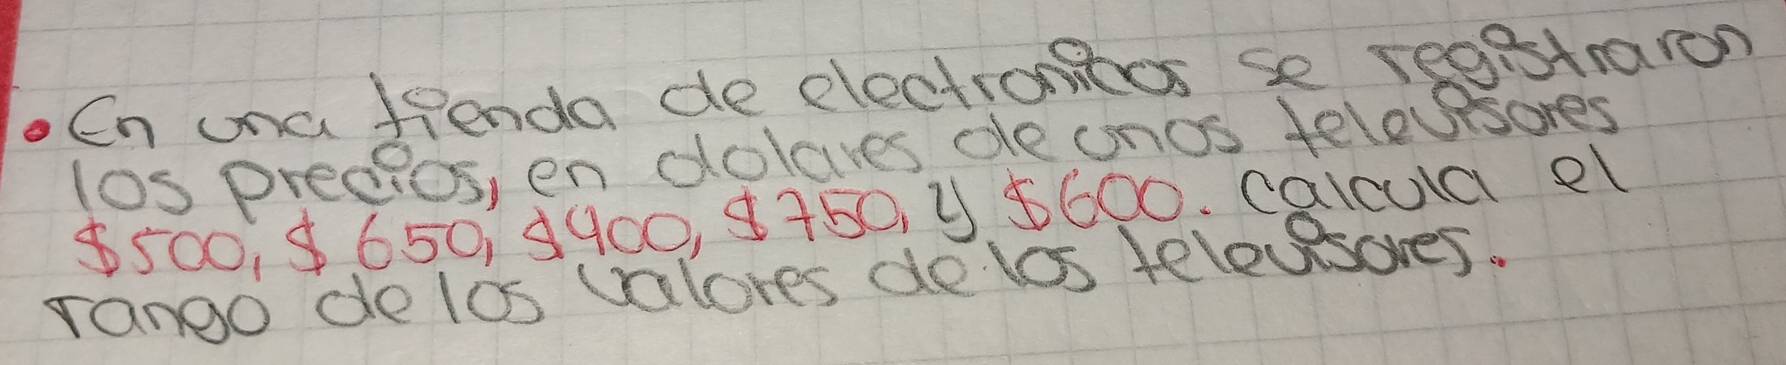 • En una tienda de electronicos se registraron
los precios, en dolares de unos televisores
$500, $650, $900, $750, y $600. calcula el
rango de los valores de los televisores.